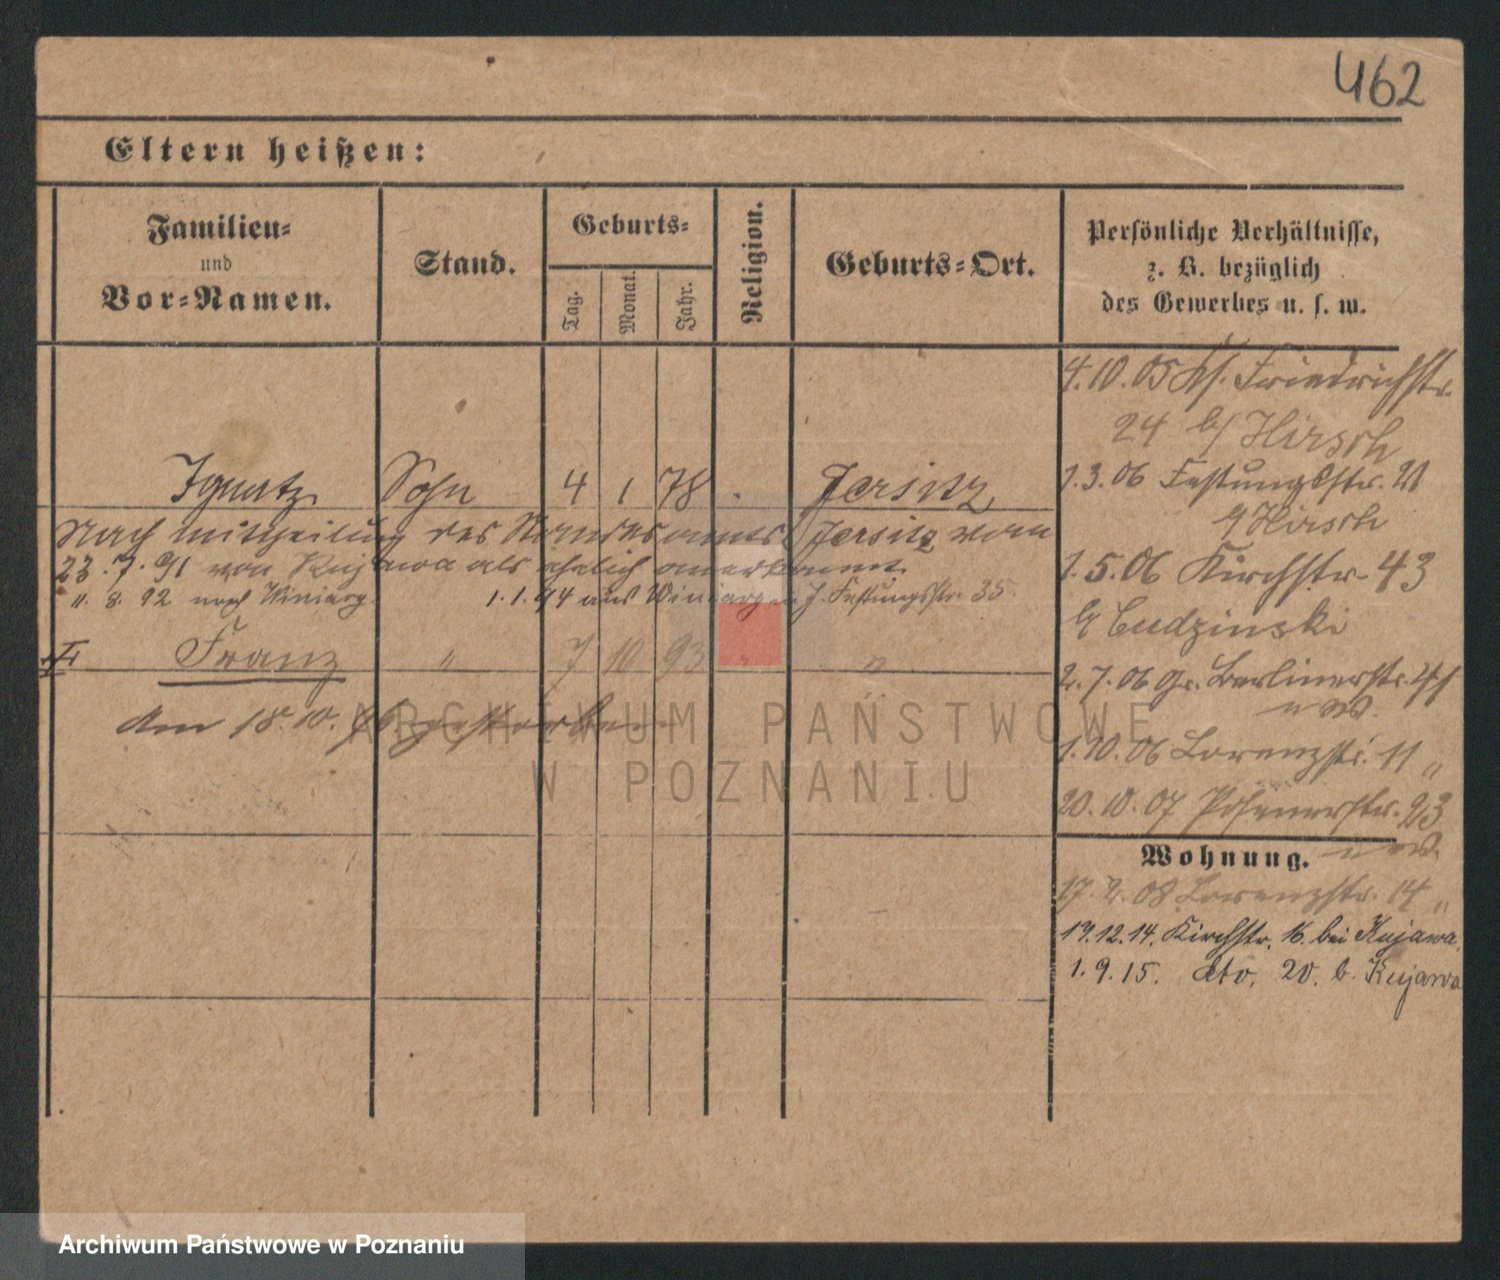 462
Eltern heißen:
Familien=
und
Vor=Namen.
Stand.
Geburts=
Tag.
Monat.
Jahr.
Religion.
Geburts=Ort.
Persönliche Verhältnisse,
z. B. bezüglich
des Gewerbes u. s. w.
Ignatz Sohn 4 1 78 Jersitz
Nach Mittheilung des Standesamts Jersitz vom
23.7.91 von Kujawa als ehelich anerkannt
11.8.92 nach Winiary
1.1.94 aus Winiary J. Festungsstr. 35
Franz " 7 10 93 " "
Am 18.10. gestorben
4.10.05 Friedrichstr.
24 b/ Hirsch
1.3.06 Festungsstr. 21
b/ Hirsch
1.5.06 Kirchstr. 43
b/ Cudzinski
2.7.06 Gr. Berlinerstr. 41
1.10.06 Lorenzstr. 11 "
20.10.07 Posenerstr. 23
Wohnung.
17.2.08 Lorenzstr. 14 "
17.12.14. Kirchstr. 16. bei Kujawa.
1.9.15. dto. 20. b. Kujawa
ARCHIWUM PAŃSTWOWE
W POZNANIU
Archiwum Państwowe w Poznaniu